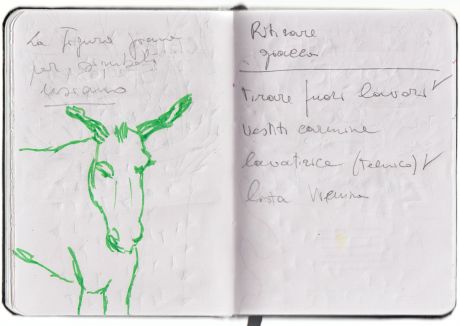 La Figura
per simboli
disegno
Ritirare
giacca
tirare fuori lavori ✓
vestiti carmine
lavatrice (tecnico) ✓
lista